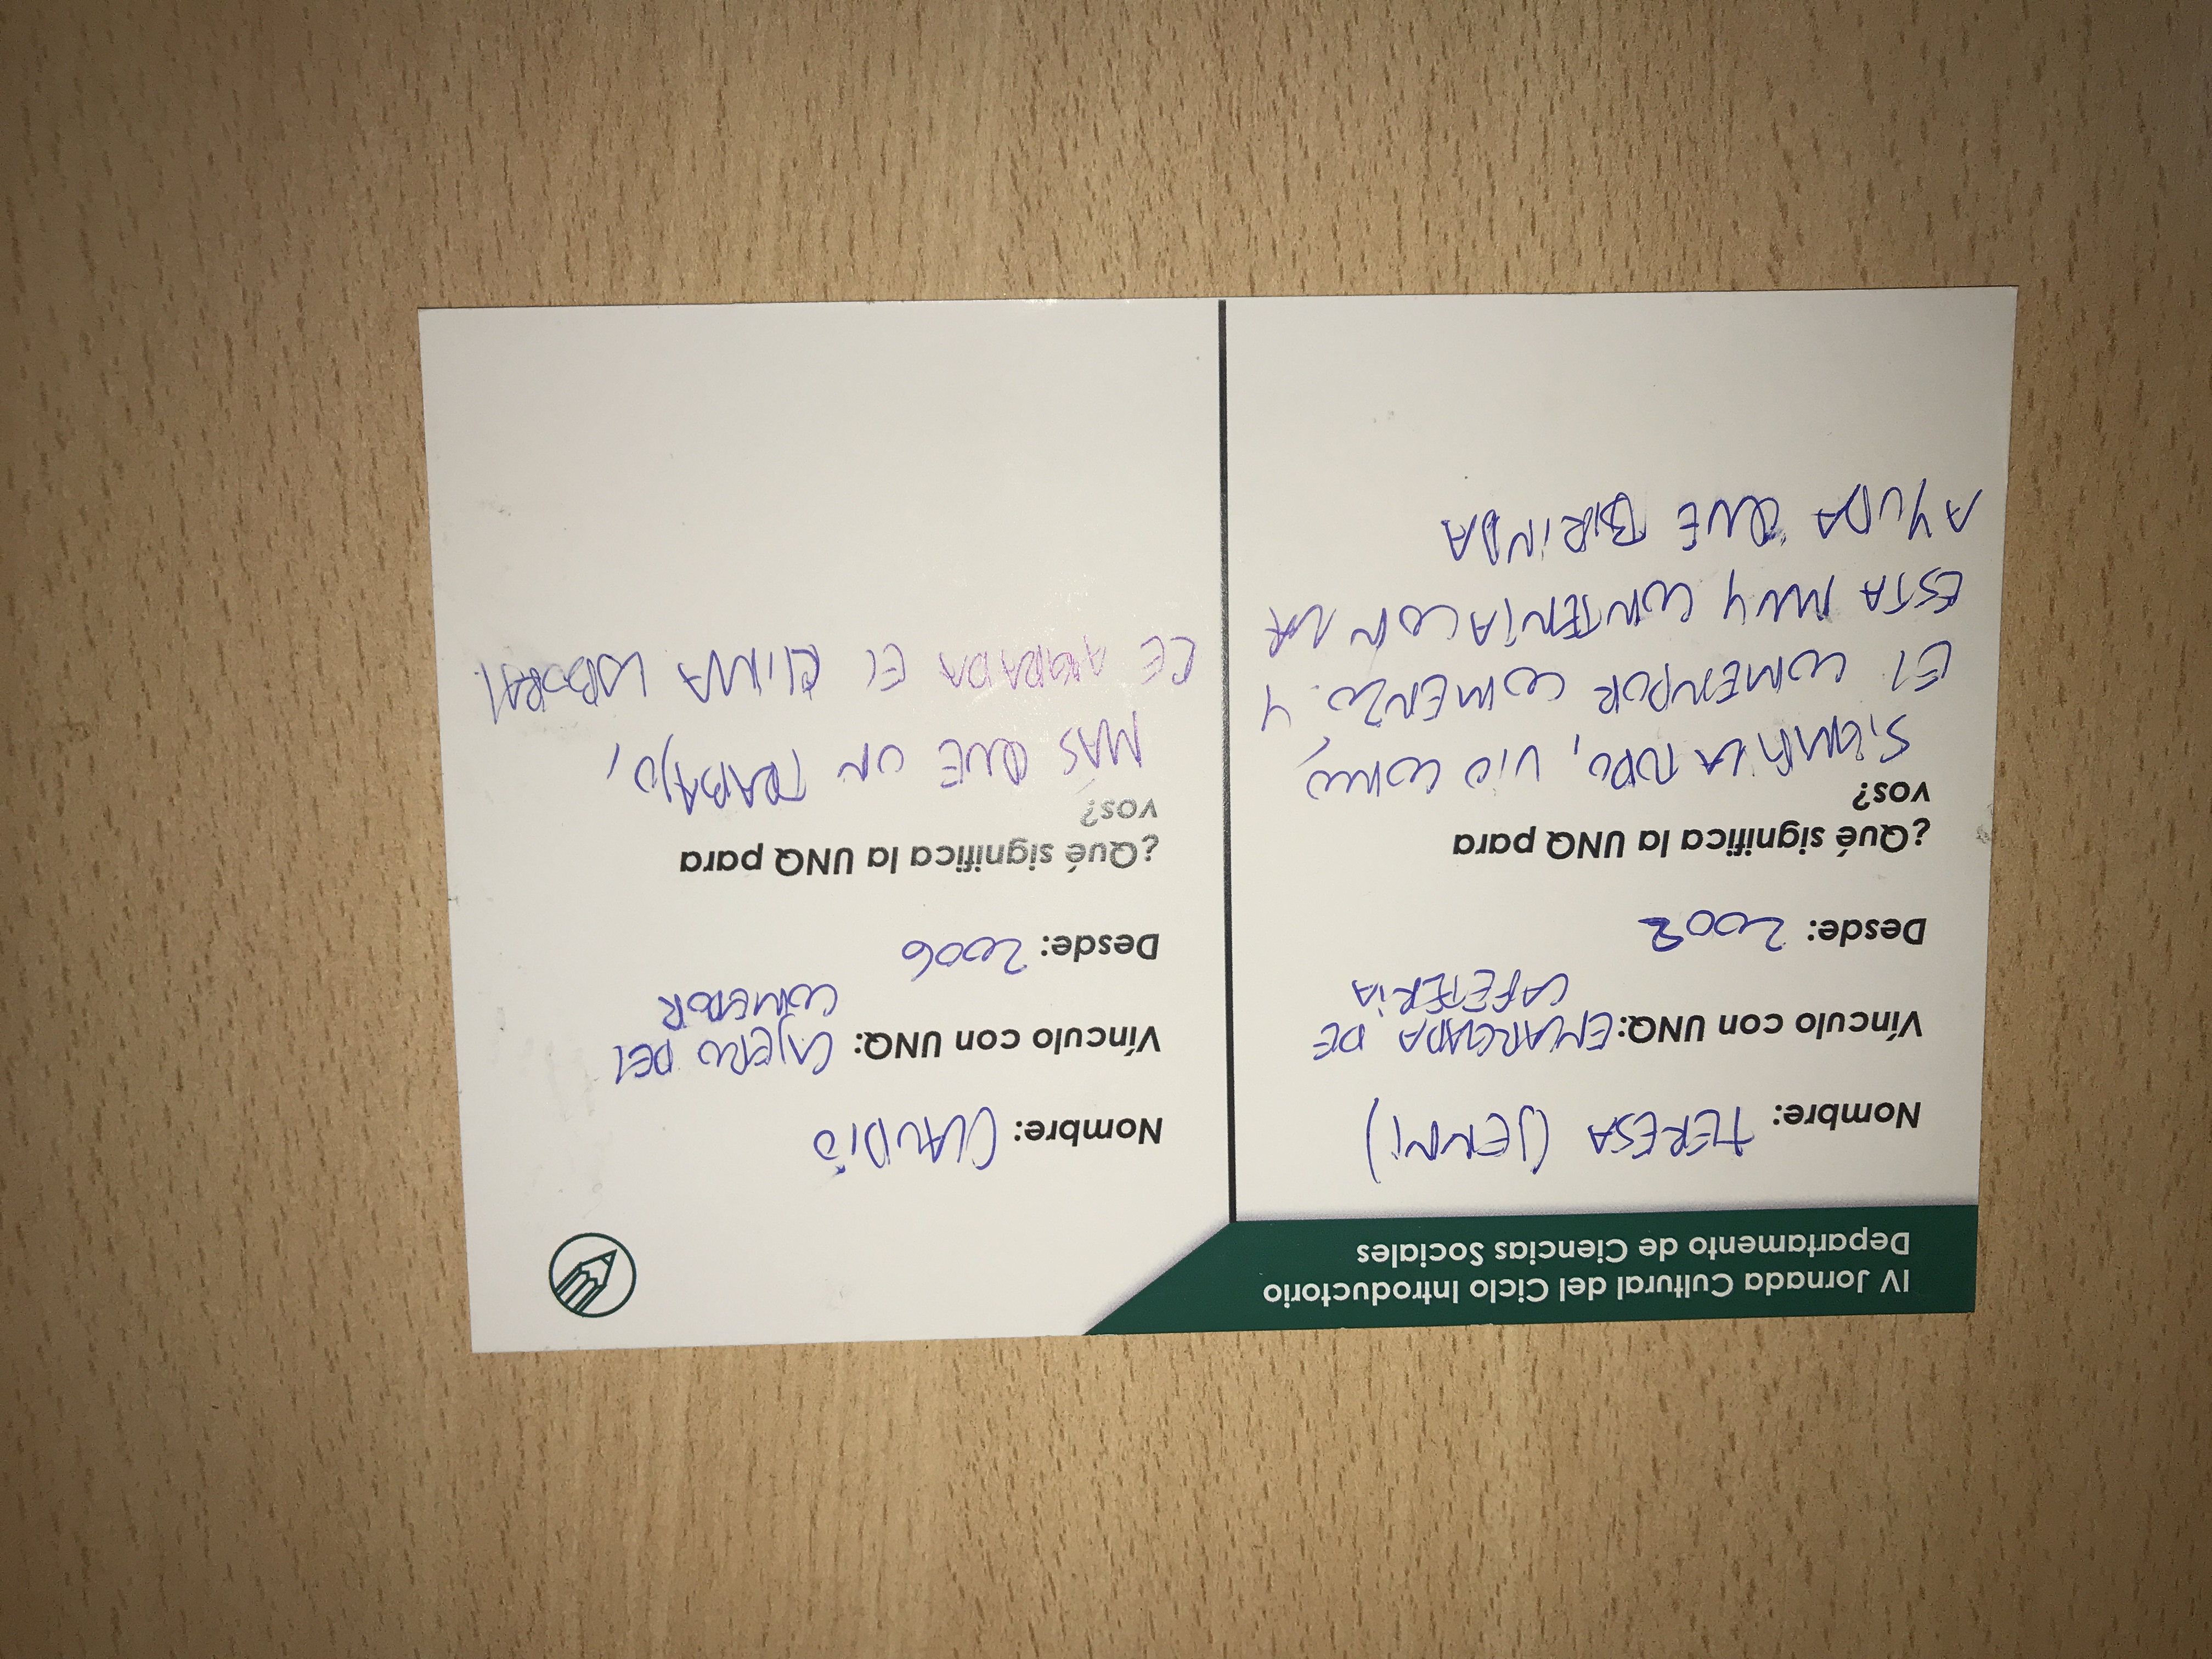 IV Jornada Cultural del Ciclo Introductorio
Departamento de Ciencias Sociales
Nombre: TERESA (JENNI)
Vínculo con UNQ: ENCARGADA DE
CAFETERIA
Desde: 2002
¿Qué significa la UNQ para
vos?
SIGNIFICA TODO, VIO COMO
El COMEDOR COMENZO. Y
ESTA MUY CONTENTA CON LA
AYUDA QUE BRINDA
Nombre: CLAUDIO
Vínculo con UNQ: CAJERO DEl
COMEDOR
Desde: 2006
¿Qué significa la UNQ para
vos?
MAS QUE UN TRABAJO,
LE AGRADA EL CLIMA LABORAl